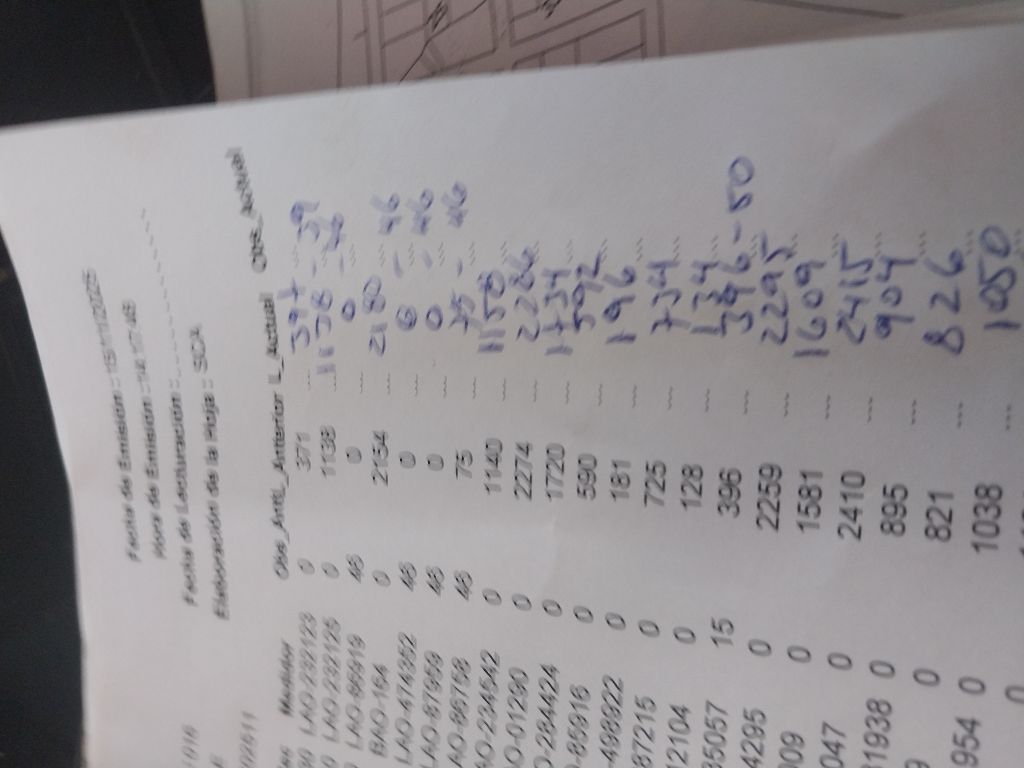 Fecha de Emisión : 15/11/2025
Hora de Emisión :
Fecha de Lecturación :
Elaboración de la Hoja : SCA
Medidor Obs_Ant L_Anterior L_Actual Obs_Actual
LAO-232123 0 371 397 - 39
LAO-232125 0 1138 1138 - 46
LAO-86919 46 0 0 - 46
BAO-164 0 2154 2180
LAO-474352 46 0 0 - 46
LAO-87959 46 0 0 - 46
AO-86758 46 75 75 - 46
AO-234542 0 1140 1158
O-01290 0 2274 2286
-284424 0 1720 1734
-85916 0 590 592
-498622 0 181 196
87215 0 725 734
12104 0 128 134
35057 15 396 396 - 50
4295 0 2259 2295
009 0 1581 1609
047 0 2410 2415
31938 0 895 904
9 0 821 826
954 0 1038 1050